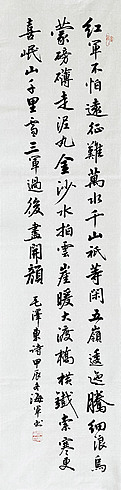 紅軍不怕遠征難萬水千山祇等閑五嶺逶迤騰細浪烏
蒙磅礴走泥丸金沙水拍雲崖暖大渡橋横鐵索寒更
喜岷山千里雪三軍過後盡開顔
毛澤東詩甲辰冬海軍书